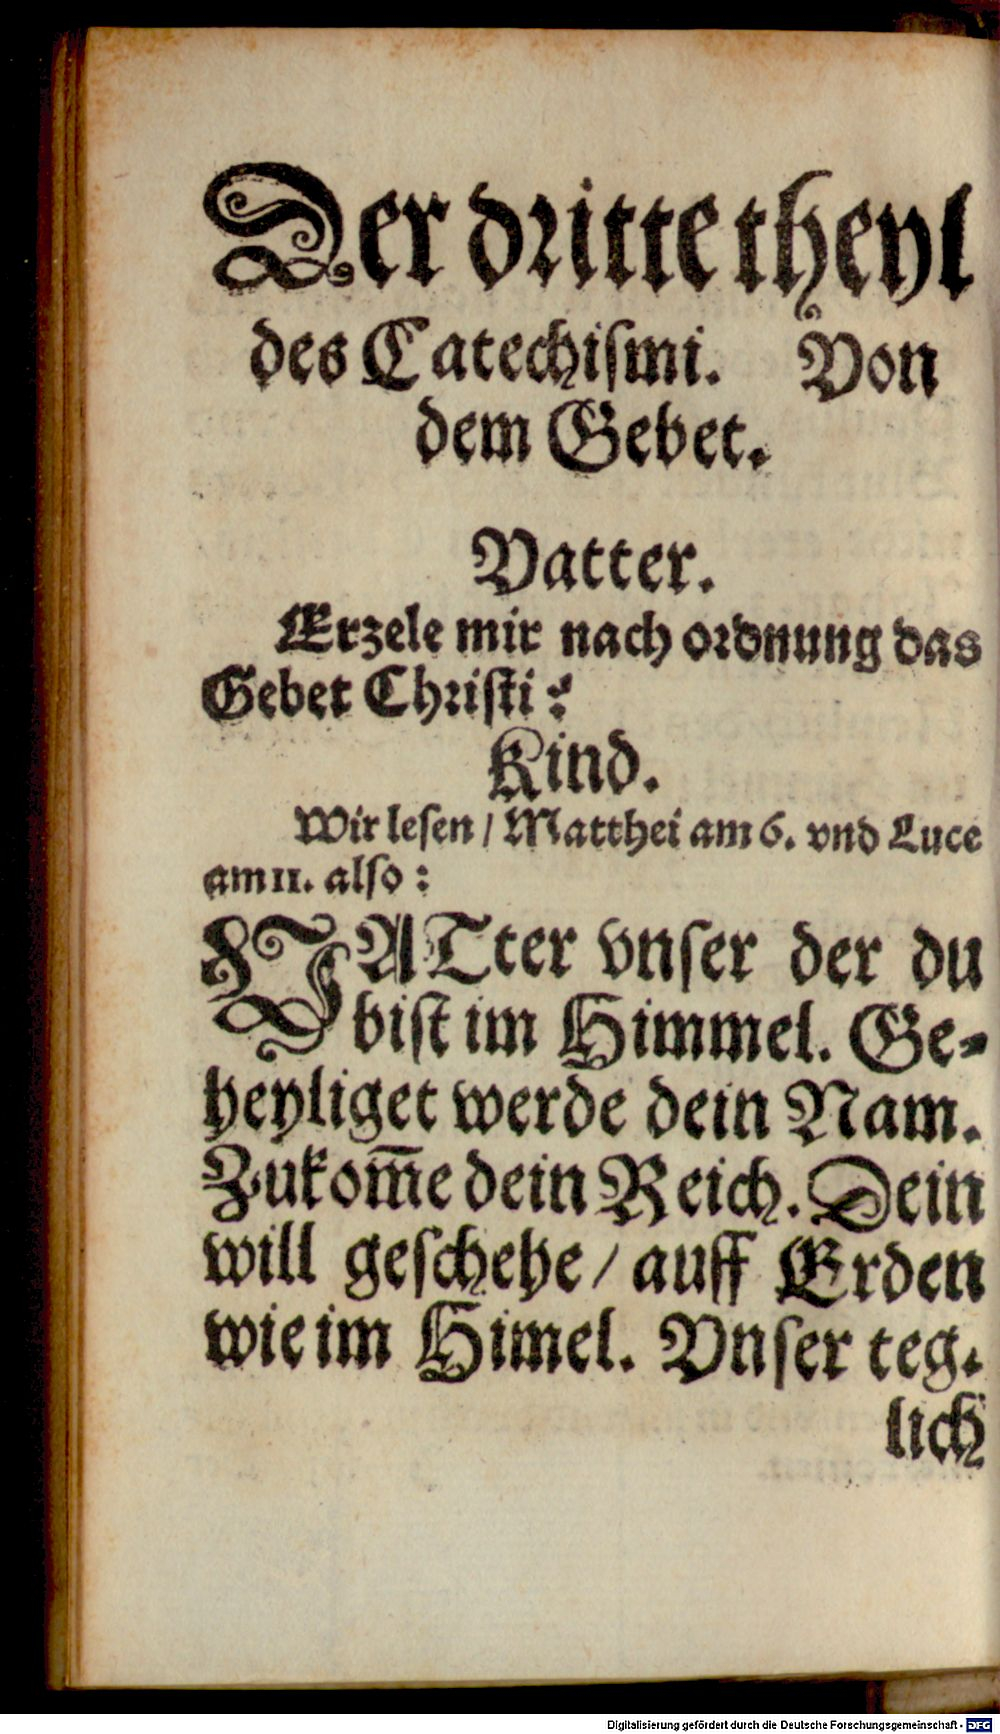 Der dritte theyl
des Catechiſmi. Von
dem Gebet.
Vatter.
Erzele mir nach ordnung das
Gebet Chriſti?
Kind.
Wir leſen / Matthei am 6. vnd Luce
am 11. alſo:
VATter vnſer der du
biſt im Himmel. Ge⸗
heyliget werde dein Nam.
Zukom̄e dein Reich. Dein
will geſchehe / auff Erden
wie im Himel. Vnſer teg⸗
lich
Digitalisierung gefördert durch die Deutsche Forschungsgemeinschaft - DFG